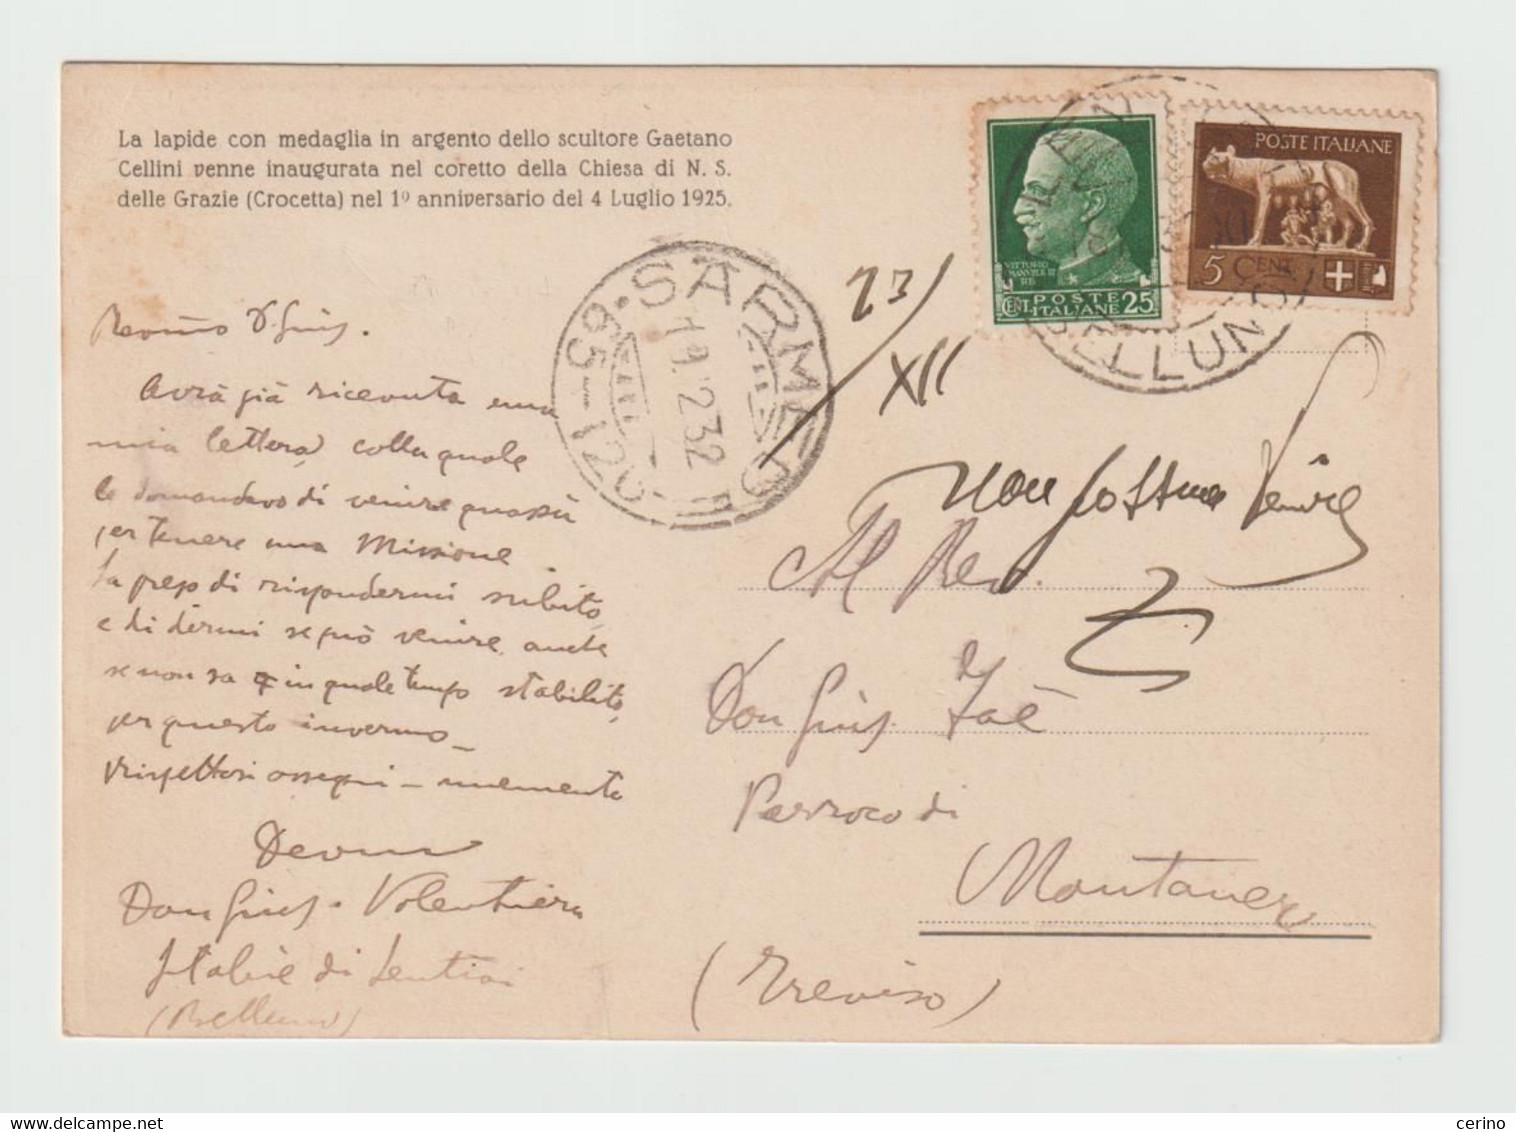 La lapide con medaglia in argento dello scultore Gaetano
Cellini venne inaugurata nel coretto della Chiesa di N. S.
delle Grazie (Crocetta) nel 1º anniversario del 4 Luglio 1925.
POSTE ITALIANE
5 CENT.
VITTORIO
EMANVELE III
RE
CENT. POSTE 25
ITALIANE
BELLUNO
SARMEDE
19.12.32
65-120
23/
XII
Avrà già ricevuta una
mia lettera, colla quale
le domandavo di venire quassù
per tenere una Missione.
La prego di rispondermi subito
e di dirmi se può venire, anche
se non sa in quale tempo stabilito,
per questo inverno_
rispettosi ossequi - memento
Don Gius.
Stabie di Lentiai
(Belluno)
non possum venire
Al Rev.
Don Gius. Zaè
Parroco di
Montaner
(Treviso)
cerino